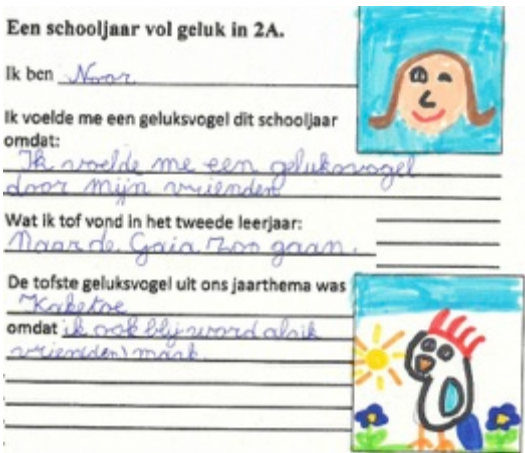 Een schooljaar vol geluk in 2A.
Ik ben Noor
Ik voelde me een geluksvogel dit schooljaar
omdat:
Ik voelde me een geluksvogel
door mijn vrienden
Wat ik tof vond in het tweede leerjaar:
Naar de Gaia Zoo gaan.
De tofste geluksvogel uit ons jaarthema was
Kaketoe
omdat ik ook blij word als ik
vriend(en) maak.